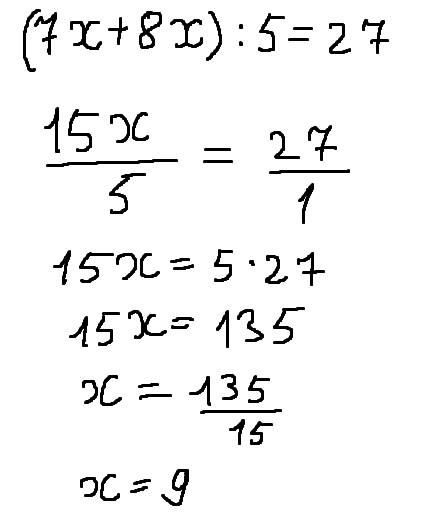 (7x+8x):5=27
15x/5 = 27/1
15x=5·27
15x=135
x=135/15
x=9